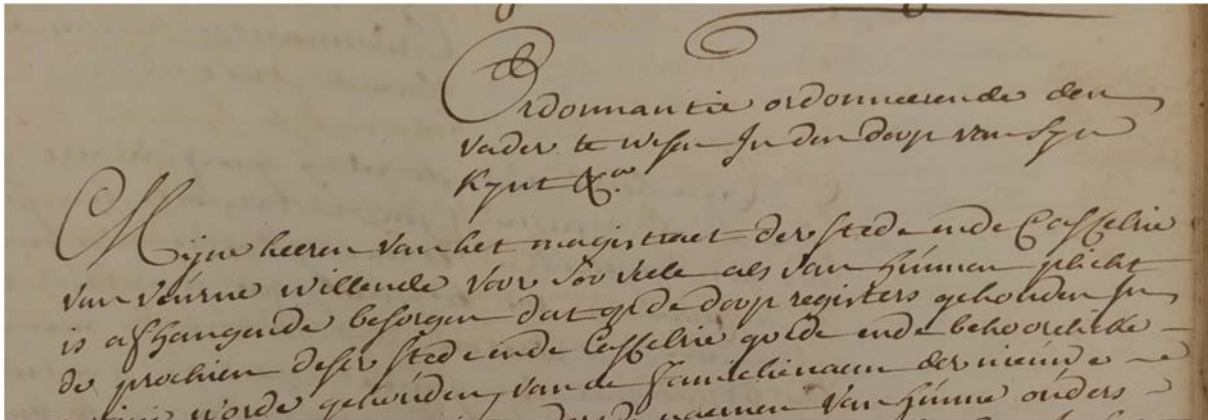 Ordonnantie ordonneerende den
vader te wesen In den doop van syn
Kynt &ca.
Mijne heeren van het magistraet der stede ende Casselrie
van veurne willende voor soo veele als van hunnen plicht
is afhangende besorgen dat op de doop registers gehouden In
de prochien deser stede ende Casselrie goede ende behoorelicke
worde gehouden, van de familienaem der nieuwe
naemen van hunne ouders